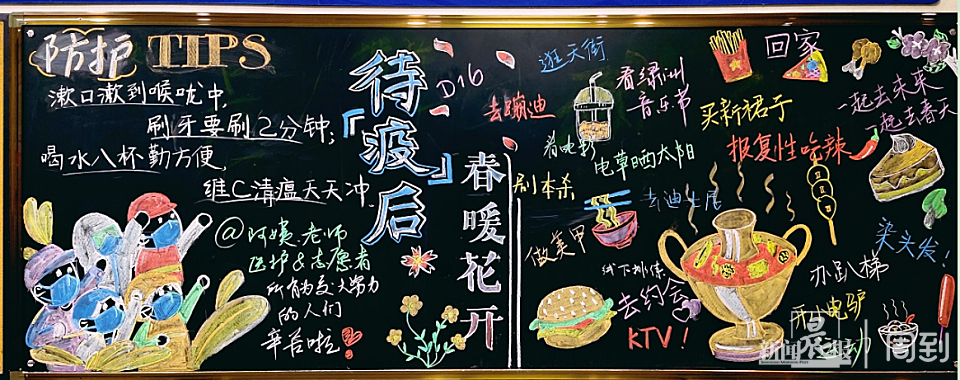 防护 TIPS
漱口漱到喉咙中,
刷牙要刷2分钟;
喝水八杯勤方便,
维C清瘟天天冲.
@阿姨、老师
医护&志愿者
的人们
辛苦啦
待「疫」后
D16
春暖花开
逛天街
去蹦迪
看绿洲
音乐节
看电影
电草晒太阳
刷本杀
去迪士尼
做美甲
去约会
KTV!
回家
买新裙子
报复性吃辣
一起去未来
一起去春天
染头发!
办趴梯
电驴
动
新闻晨报 周到